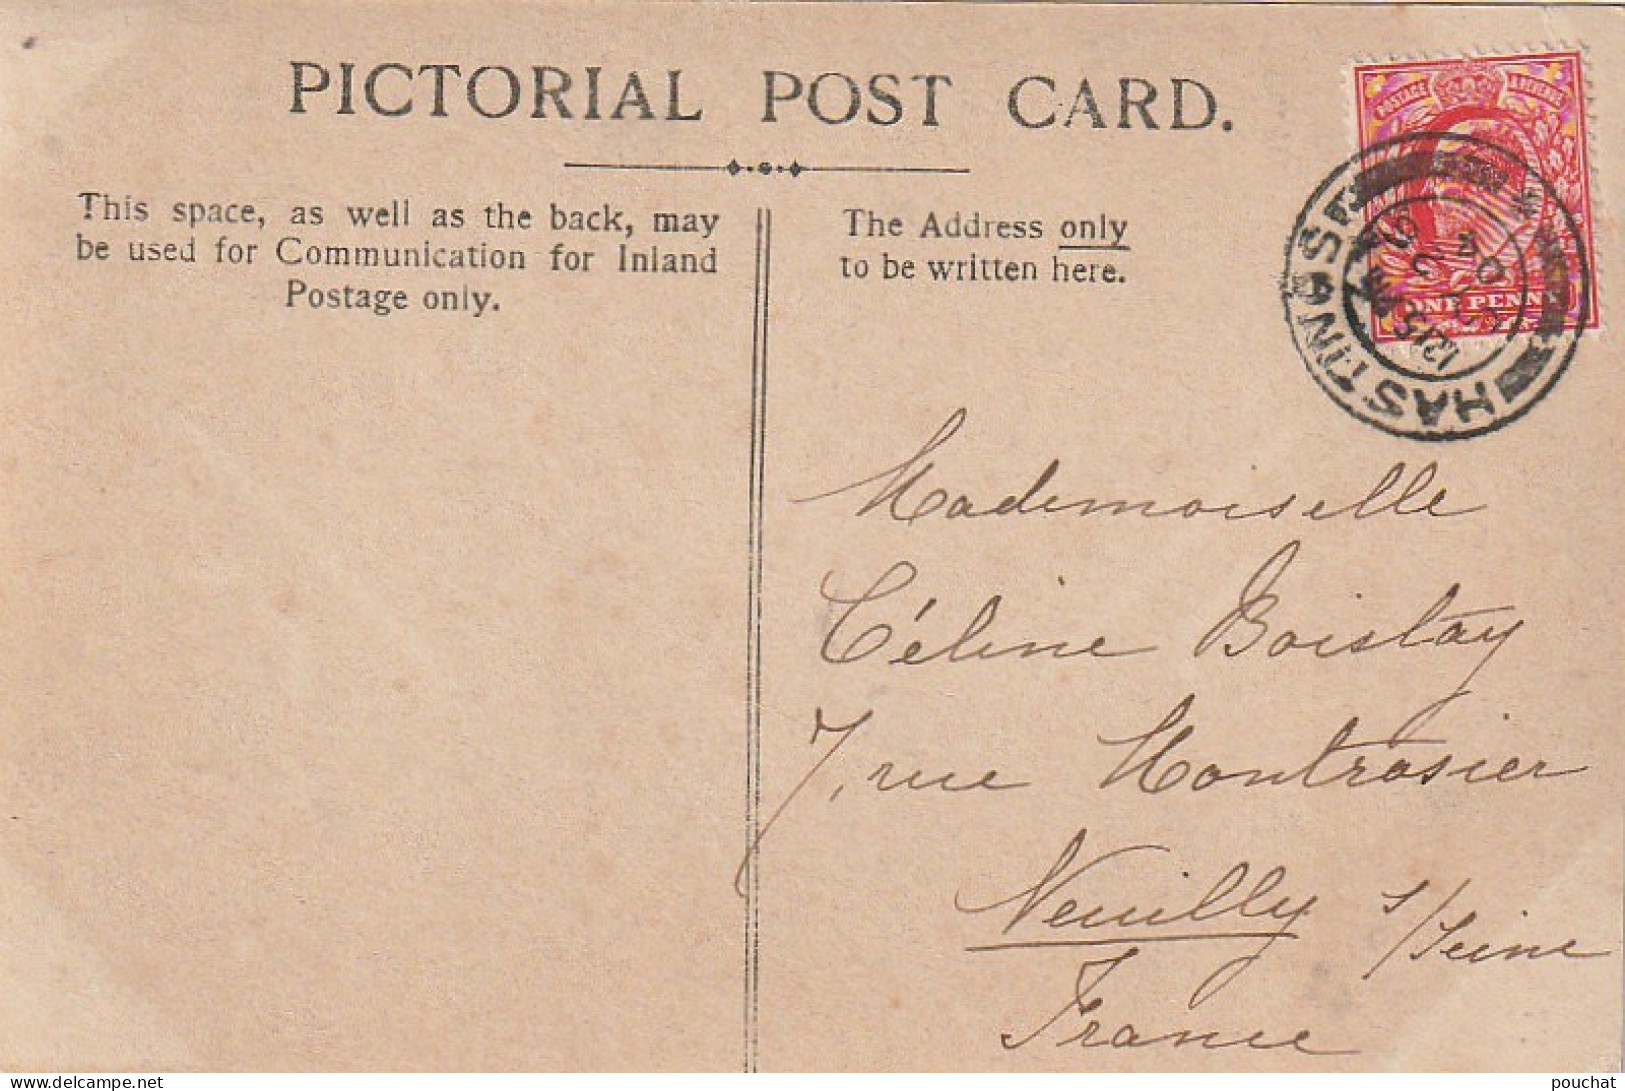 PICTORIAL POST CARD.
This space, as well as the back, may
be used for Communication for Inland
Postage only.
The Address only
to be written here.
POSTAGE & REVENUE
ONE PENNY
HASTINGS
12.15 PM
Mademoiselle
Céline Boistay
7, rue Montrosier
Neuilly s/Seine
France
delcampe.net
pouchat